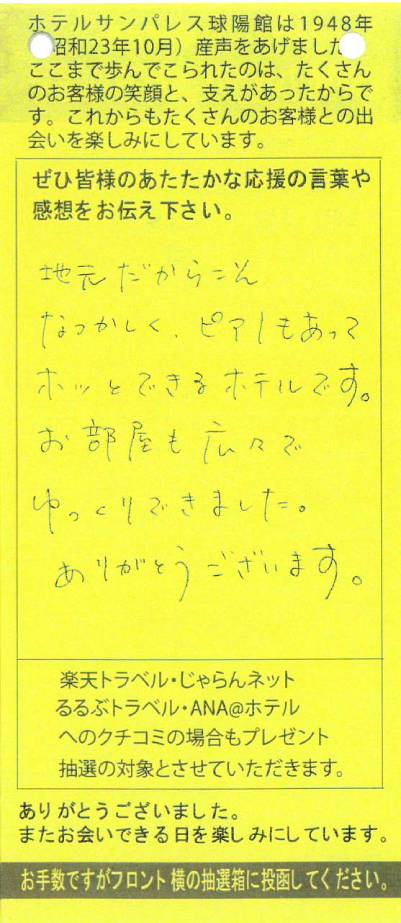 ホテルサンパレス球陽館は1948年
昭和23年10月）産声をあげました
ここまで歩んでこられたのは、たくさん
のお客様の笑顔と、支えがあったからで
す。これからもたくさんのお客様との出
会いを楽しみにしています。
ぜひ皆様のあたたかな応援の言葉や
感想をお伝え下さい。
地元だからこそ
なつかしく、ピアノもあって
ホッとできるホテルです。
お部屋も広々で
ゆっくりできました。
ありがとうございます。
楽天トラベル・じゃらんネット
るるぶトラベル・ANA@ホテル
へのクチコミの場合もプレゼント
抽選の対象とさせていただきます。
ありがとうございました。
またお会いできる日を楽しみにしています。
お手数ですがフロント横の抽選箱に投函してください。